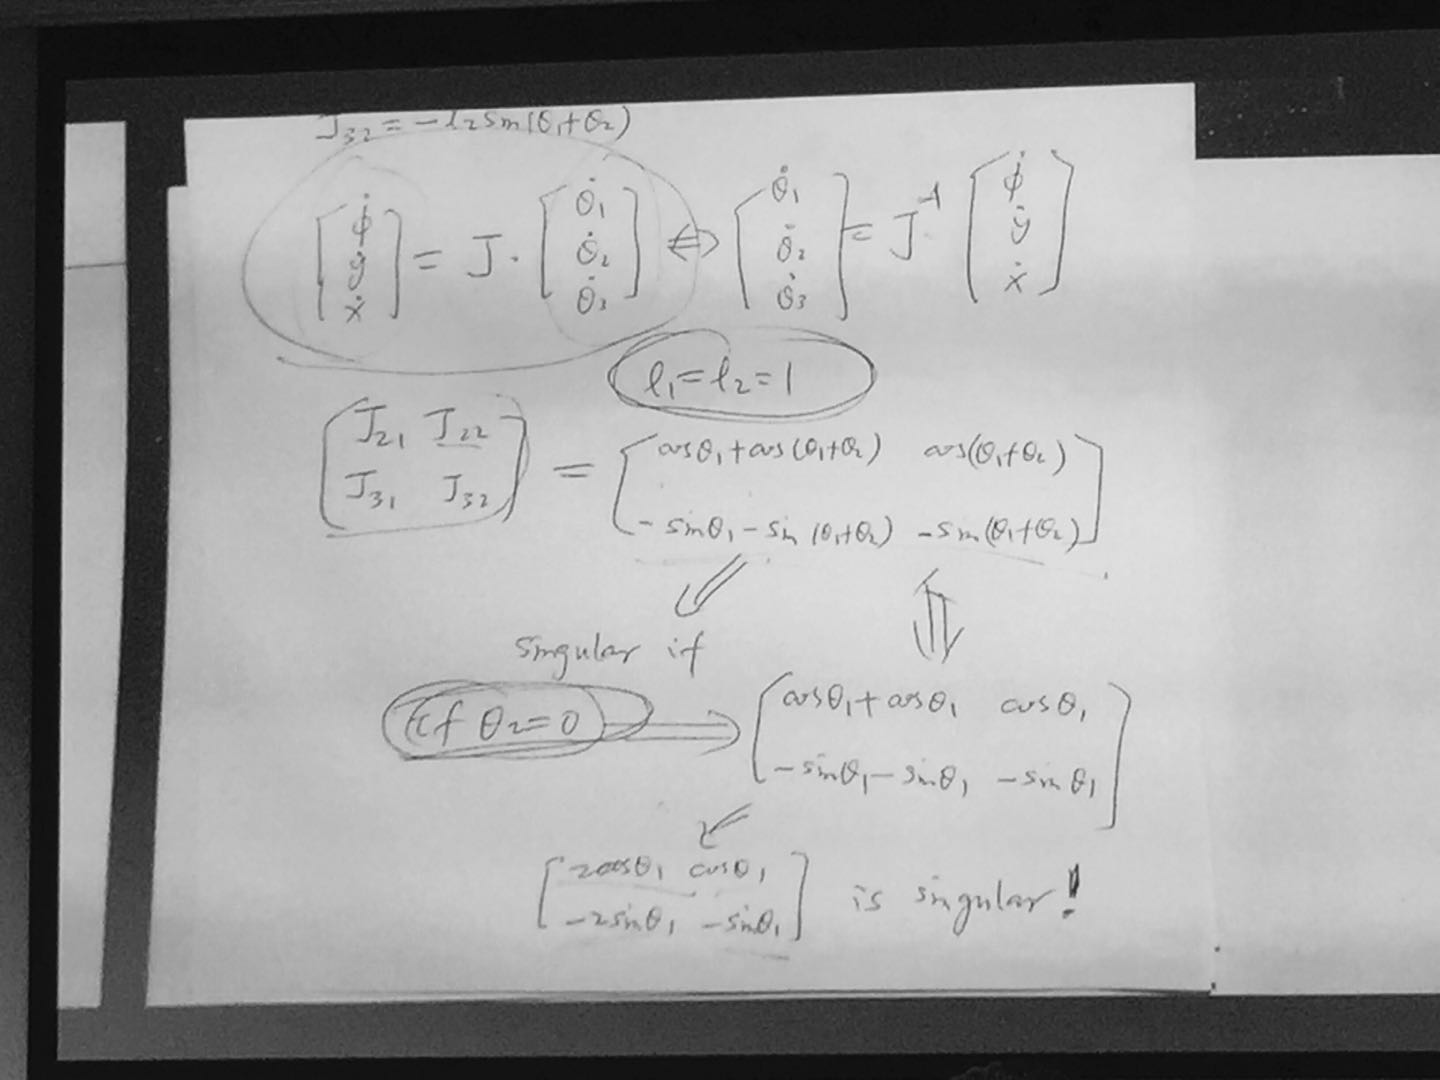 J₃₂ = -l₂sin(θ₁+θ₂)
[φ̇ ẏ ẋ] = J · [θ̇₁ θ̇₂ θ̇₃] ⇔ [θ̇₁ θ̇₂ θ̇₃] = J⁻¹ [φ̇ ẏ ẋ]
l₁=l₂=1
[J₂₁ J₂₂ = [cosθ₁+cos(θ₁+θ₂) cos(θ₁+θ₂)
J₃₁ J₃₂] -sinθ₁-sin(θ₁+θ₂) -sin(θ₁+θ₂)]
singular if
if θ₂=0 ⇒ [cosθ₁+cosθ₁ cosθ₁
-sinθ₁-sinθ₁ -sinθ₁]
[2cosθ₁ cosθ₁
-2sinθ₁ -sinθ₁] is singular!